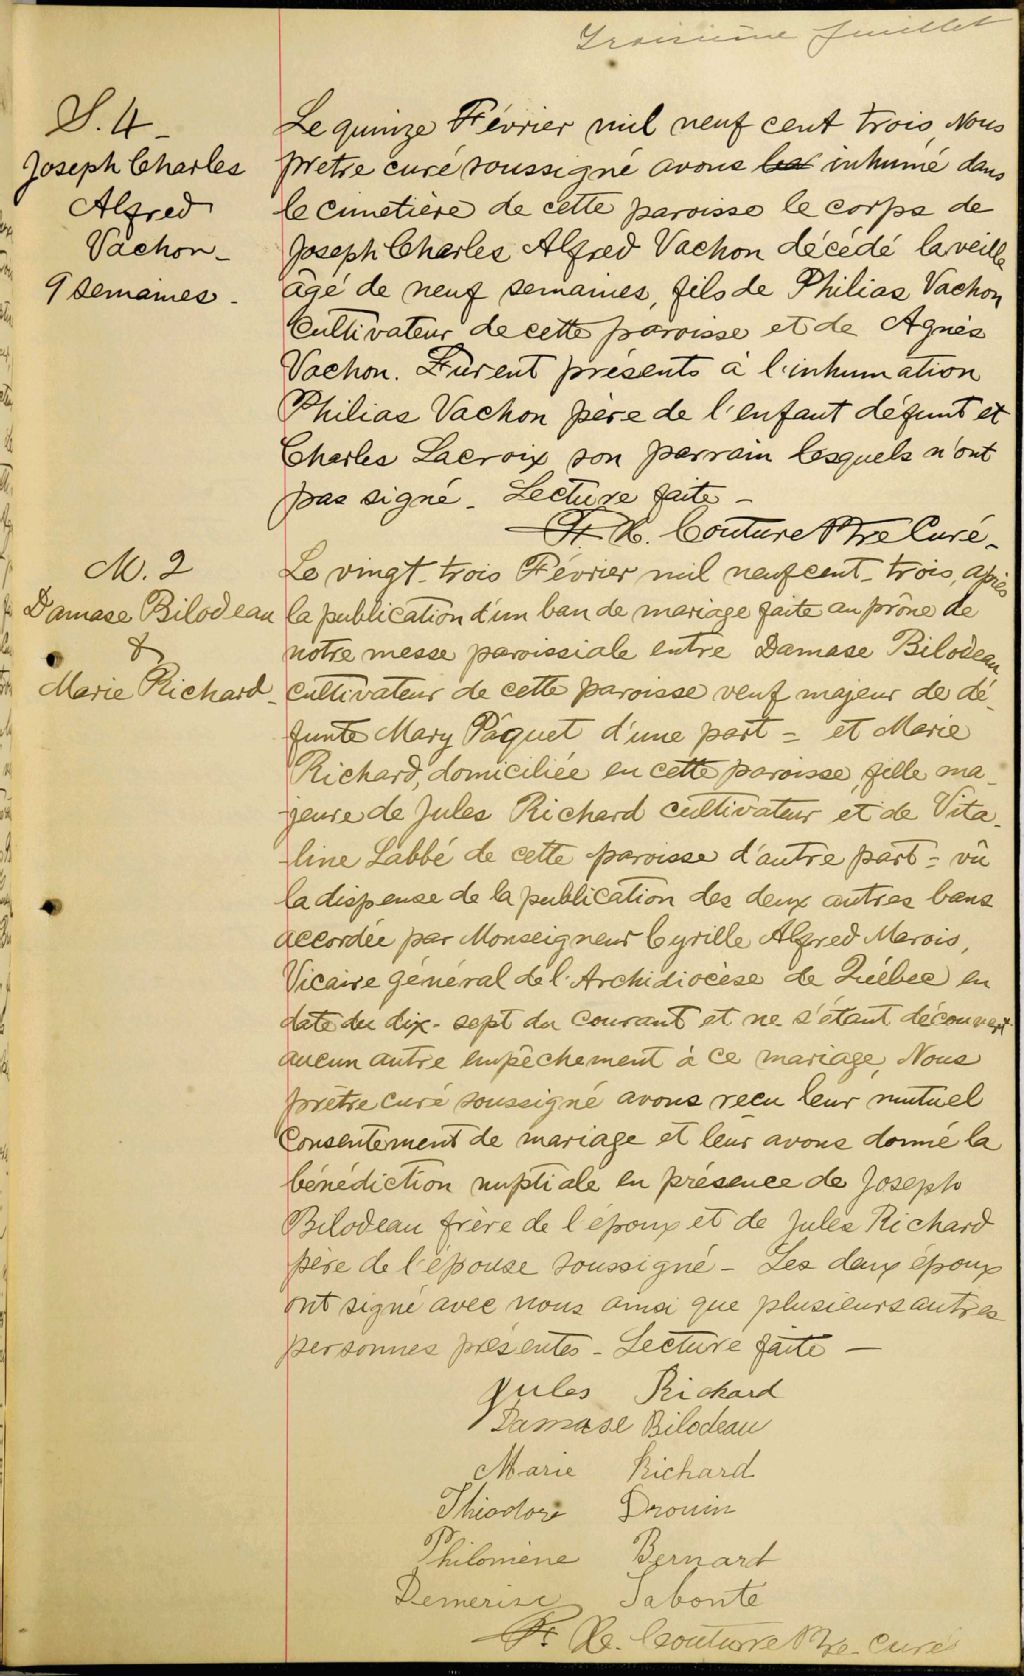 Troisième feuillet
S. 4
Joseph Charles
Alfred
Vachon
9 semaines.
Le quinze Février mil neuf cent trois, Nous
prêtre curé soussigné avons inhumé dans
le cimetière de cette paroisse le corps de
Joseph Charles Alfred Vachon décédé la veille
âgé de neuf semaines, fils de Philias Vachon
cultivateur de cette paroisse et de Agnès
Vachon. Furent présents à l'inhumation
Philias Vachon père de l'enfant défunt et
Charles Lacroix son parrain lesquels n'ont
pas signé. Lecture faite -
F. X. Couture Ptre Curé.
M. 2
Damase Bilodeau
&
Marie Richard
Le vingt-trois Février mil neuf cent-trois, après
la publication d'un ban de mariage faite au prône de
notre messe paroissiale entre Damase Bilodeau,
cultivateur de cette paroisse veuf majeur de dé-
funte Mary Páquet d'une part = et Marie
Richard, domiciliée en cette paroisse, fille ma-
-jeure de Jules Richard cultivateur et de Vita-
-line Labbé de cette paroisse d'autre part = vû
la dispense de la publication des deux autres bans
accordée par Monseigneur Cyrille Alfred Marois,
Vicaire général de l'Archidiocèse de Québec en
date du dix-sept du courant et ne s'étant découvert
aucun autre empêchement à ce mariage, Nous
prêtre curé soussigné avons reçu leur mutuel
consentement de mariage et leur avons donné la
bénédiction nuptiale en présence de Joseph
Bilodeau frère de l'époux et de Jules Richard
père de l'épouse soussigné - Les deux époux
ont signé avec nous ainsi que plusieurs autres
personnes présentes - Lecture faite -
Jules Richard
Damase Bilodeau
Marie Richard
Théodore Drouin
Philomène Bernard
Demerise Labonté
F. X. Couture Ptre Curé